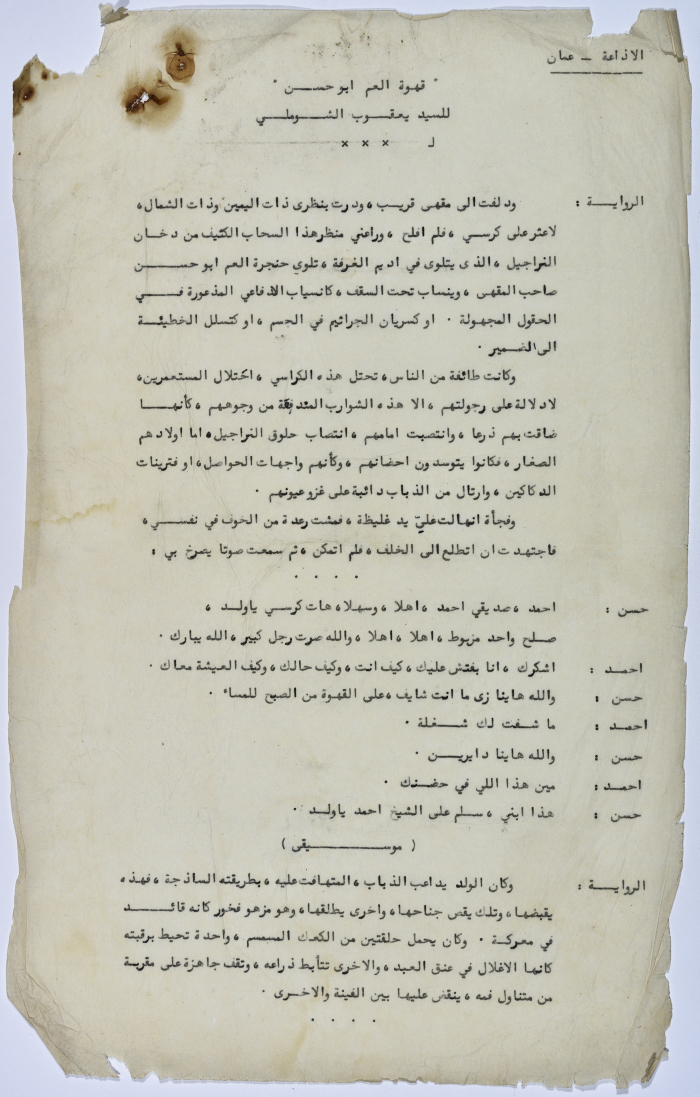 الاذاعة – عمان
" قهوة العم ابو حسن "
للسيد يعقوب الشوملي
لـ × × ×
الرواية : ودلفت الى مقهى قريب ، ودرت بنظرى ذات اليمين وذات الشمال ،
لاعثر على كرسي ، فلم افلح ، وراعني منظر هذا السحاب الكثيف من دخان
النراجيل ، الذى يتلوى في اديم الغرفة ، تلوي حنجرة العم ابو حسن
صاحب المقهى ، وينساب تحت السقف ، كانسياب الافاعي المذعورة في
الحقول المجهولة . او كسريان الجراثيم في الجسم ، او كتسلل الخطيئة
الى الضمير .
وكانت طائفة من الناس ، تحتل هذه الكراسي ، احتلال المستعمرين ،
لا دلالة على رجولتهم ، الا هذه الشوارب المتدفقة من وجوههم ، كأنها
ضاقت بهم ذرعا ، وانتصبت امامهم ، انتصاب حلوق النراجيل ، اما اولادهم
الصغار ، فكانوا يتوسدون احضانهم ، وكأنهم واجهات الحواصل ، او فترينات
الدكاكين ، وارتال من الذباب دائبة على غزو عيونهم .
وفجأة انهالت عليّ يد غليظة ، فمشت رعدة من الخوف في نفسي ،
فاجتهدت ان اتطلع الى الخلف ، فلم اتمكن ، ثم سمعت صوتا يصرخ بي :
. . . .
حسن : احمد ، صديقي احمد ، اهلا ، وسهلا ، هات كرسي ياولد ،
صلح واحد مزبوط ، اهلا ، اهلا ، والله صرت رجل كبير ، الله يبارك .
احمد : اشكرك ، انا بفتش عليك ، كيف انت ، وكيف حالك ، وكيف العيشة معاك .
حسن : والله هاينا زى ما انت شايف ، على القهوة من الصبح للمساء .
احمد : ما شفت لك شغلة .
حسن : والله هاينا دايرين .
احمد : مين هذا اللي في حضنك .
حسن : هذا ابني ، سلم على الشيخ احمد ياولد .
( موسيقى )
الرواية : وكان الولد يداعب الذباب ، المتهافت عليه ، بطريقته الساذجة ، فهذه
يقبضها ، وتلك يقص جناحها ، واخرى يطلقها ، وهو مزهو فخور كانه قائد
في معركة . وكان يحمل حلقتين من الكعك المسمسم ، واحدة تحيط برقبته
كانها الاغلال في عنق العبد ، والاخرى تتأبط ذراعه ، وتقف جاهزة على مقربة
من متناول فمه ، ينقض عليها بين الفينة والاخرى .
. . . .